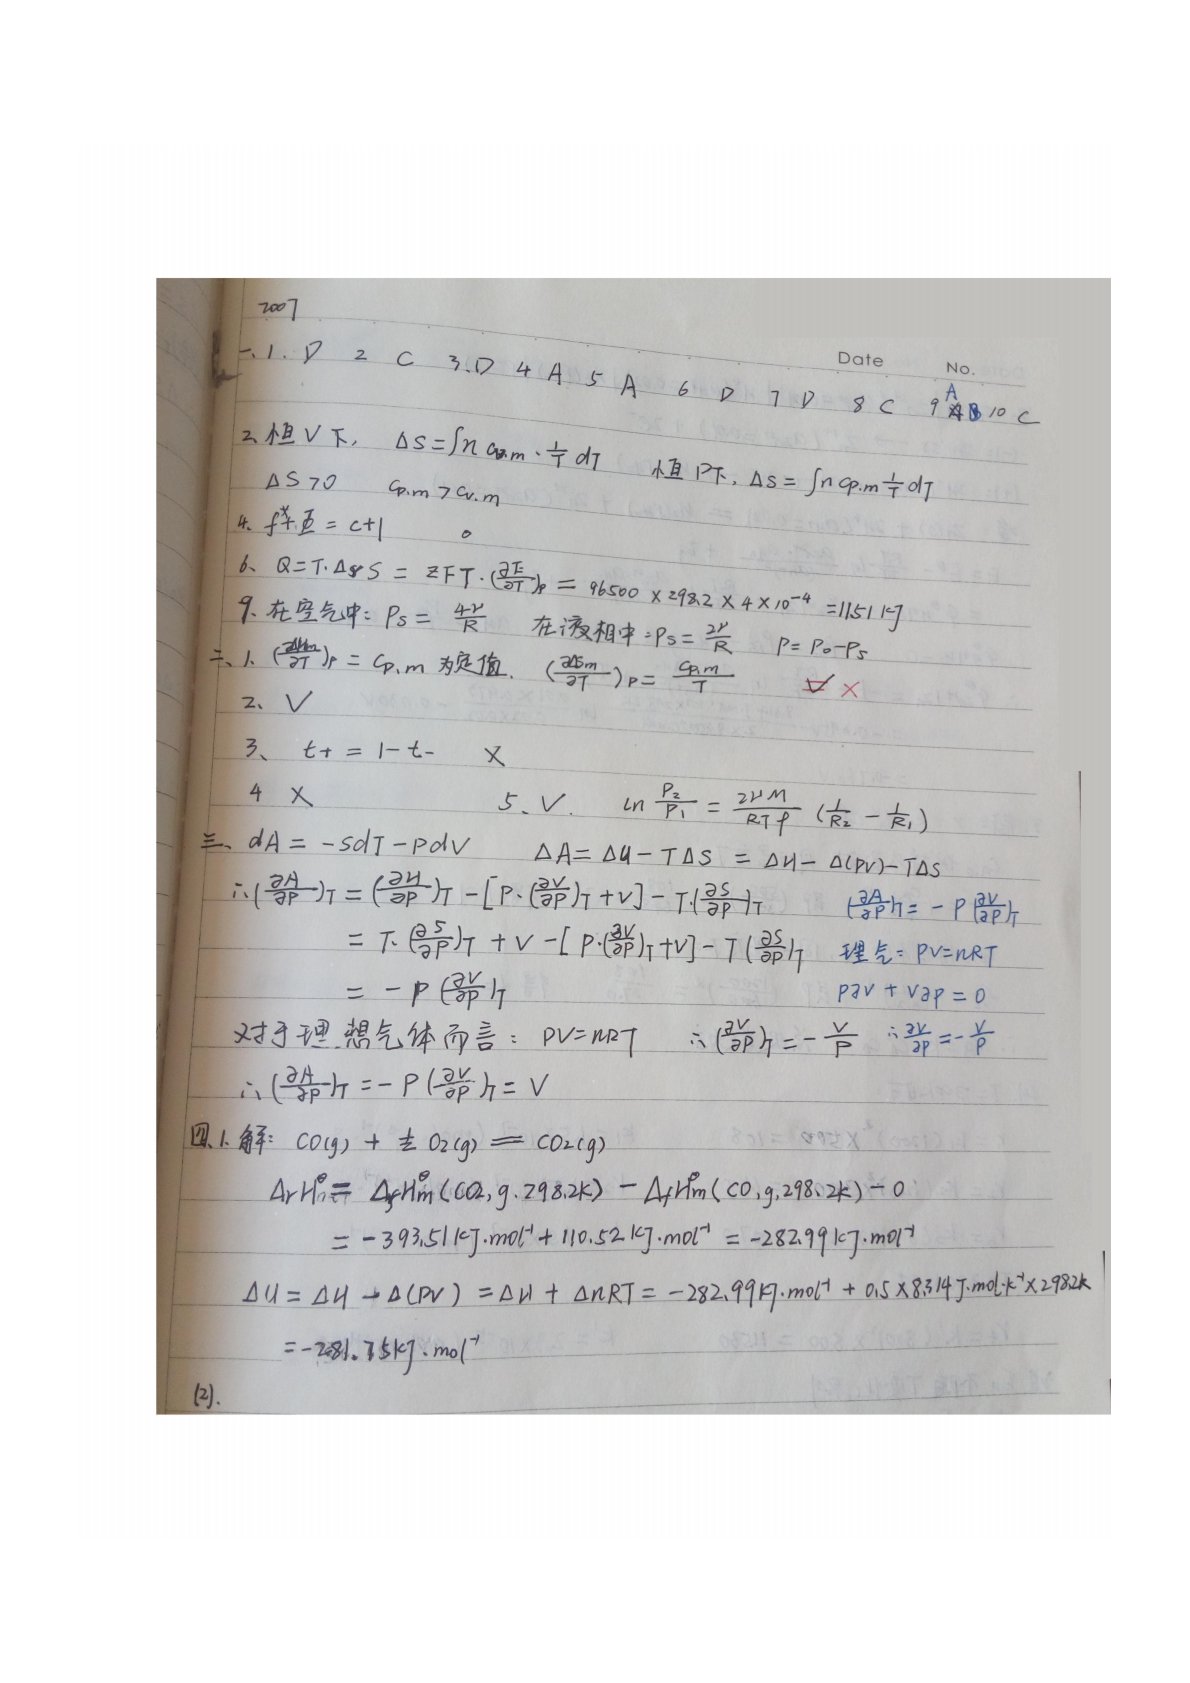 2007
Date No.
一、1. D 2 C 3.D 4 A 5 A 6 D 7 D 8 C 9 A B 10 C
2、恒V下, ΔS=∫n Cv.m · 1/T dT 恒P下, ΔS = ∫n Cp.m 1/T dT
ΔS>0 Cp.m > Cv.m
4. f* + Φ = C+1
6、 Q=T·ΔS = ZFT·(∂E/∂T)p = 96500 × 298.2 × 4 × 10⁻⁴ = 11.51 kJ
9. 在空气中: Ps = 4γ/R 在液相中: Ps = 2γ/R P = P0-Ps
二、1. (∂ΔHm/∂T)p = Cp,m 为定值. (∂ΔSm/∂T)p = Cp.m/T ×
2、 V
3、 t+ = 1- t- X
4 X 5、V. ln P2/P1 = 2γM/RTρ (1/R2 - 1/R1)
三、dA = -SdT-PdV ΔA = ΔU - TΔS = ΔH - Δ(PV)-TΔS
∴(∂A/∂P)T = (∂H/∂P)T - [P·(∂V/∂P)T +V] - T·(∂S/∂P)T (∂A/∂P)T = -P(∂V/∂P)T
= T·(∂S/∂P)T + V - [P·(∂V/∂P)T+V] - T(∂S/∂P)T 理气: PV=nRT
= -P(∂V/∂P)T P∂V + V∂P = 0
对于理想气体而言: PV=nRT ∴(∂V/∂P)T = -V/P ∴∂V/∂P = -V/P
∴(∂A/∂P)T = -P(∂V/∂P)T = V
四、1.解: CO(g) + ½ O2(g) = CO2(g)
ΔrHm^θ = ΔfHm^θ(CO2, g. 298.2K) - ΔfHm^θ(CO, g, 298.2K) - 0
= -393.51 kJ·mol⁻¹ + 110.52 kJ·mol⁻¹ = -282.99 kJ·mol⁻¹
ΔU = ΔH - Δ(PV) = ΔH + ΔnRT = -282.99 kJ·mol⁻¹ + 0.5×8.314J·mol·K⁻¹×298.2K
= -281.75kJ·mol⁻¹
(2).